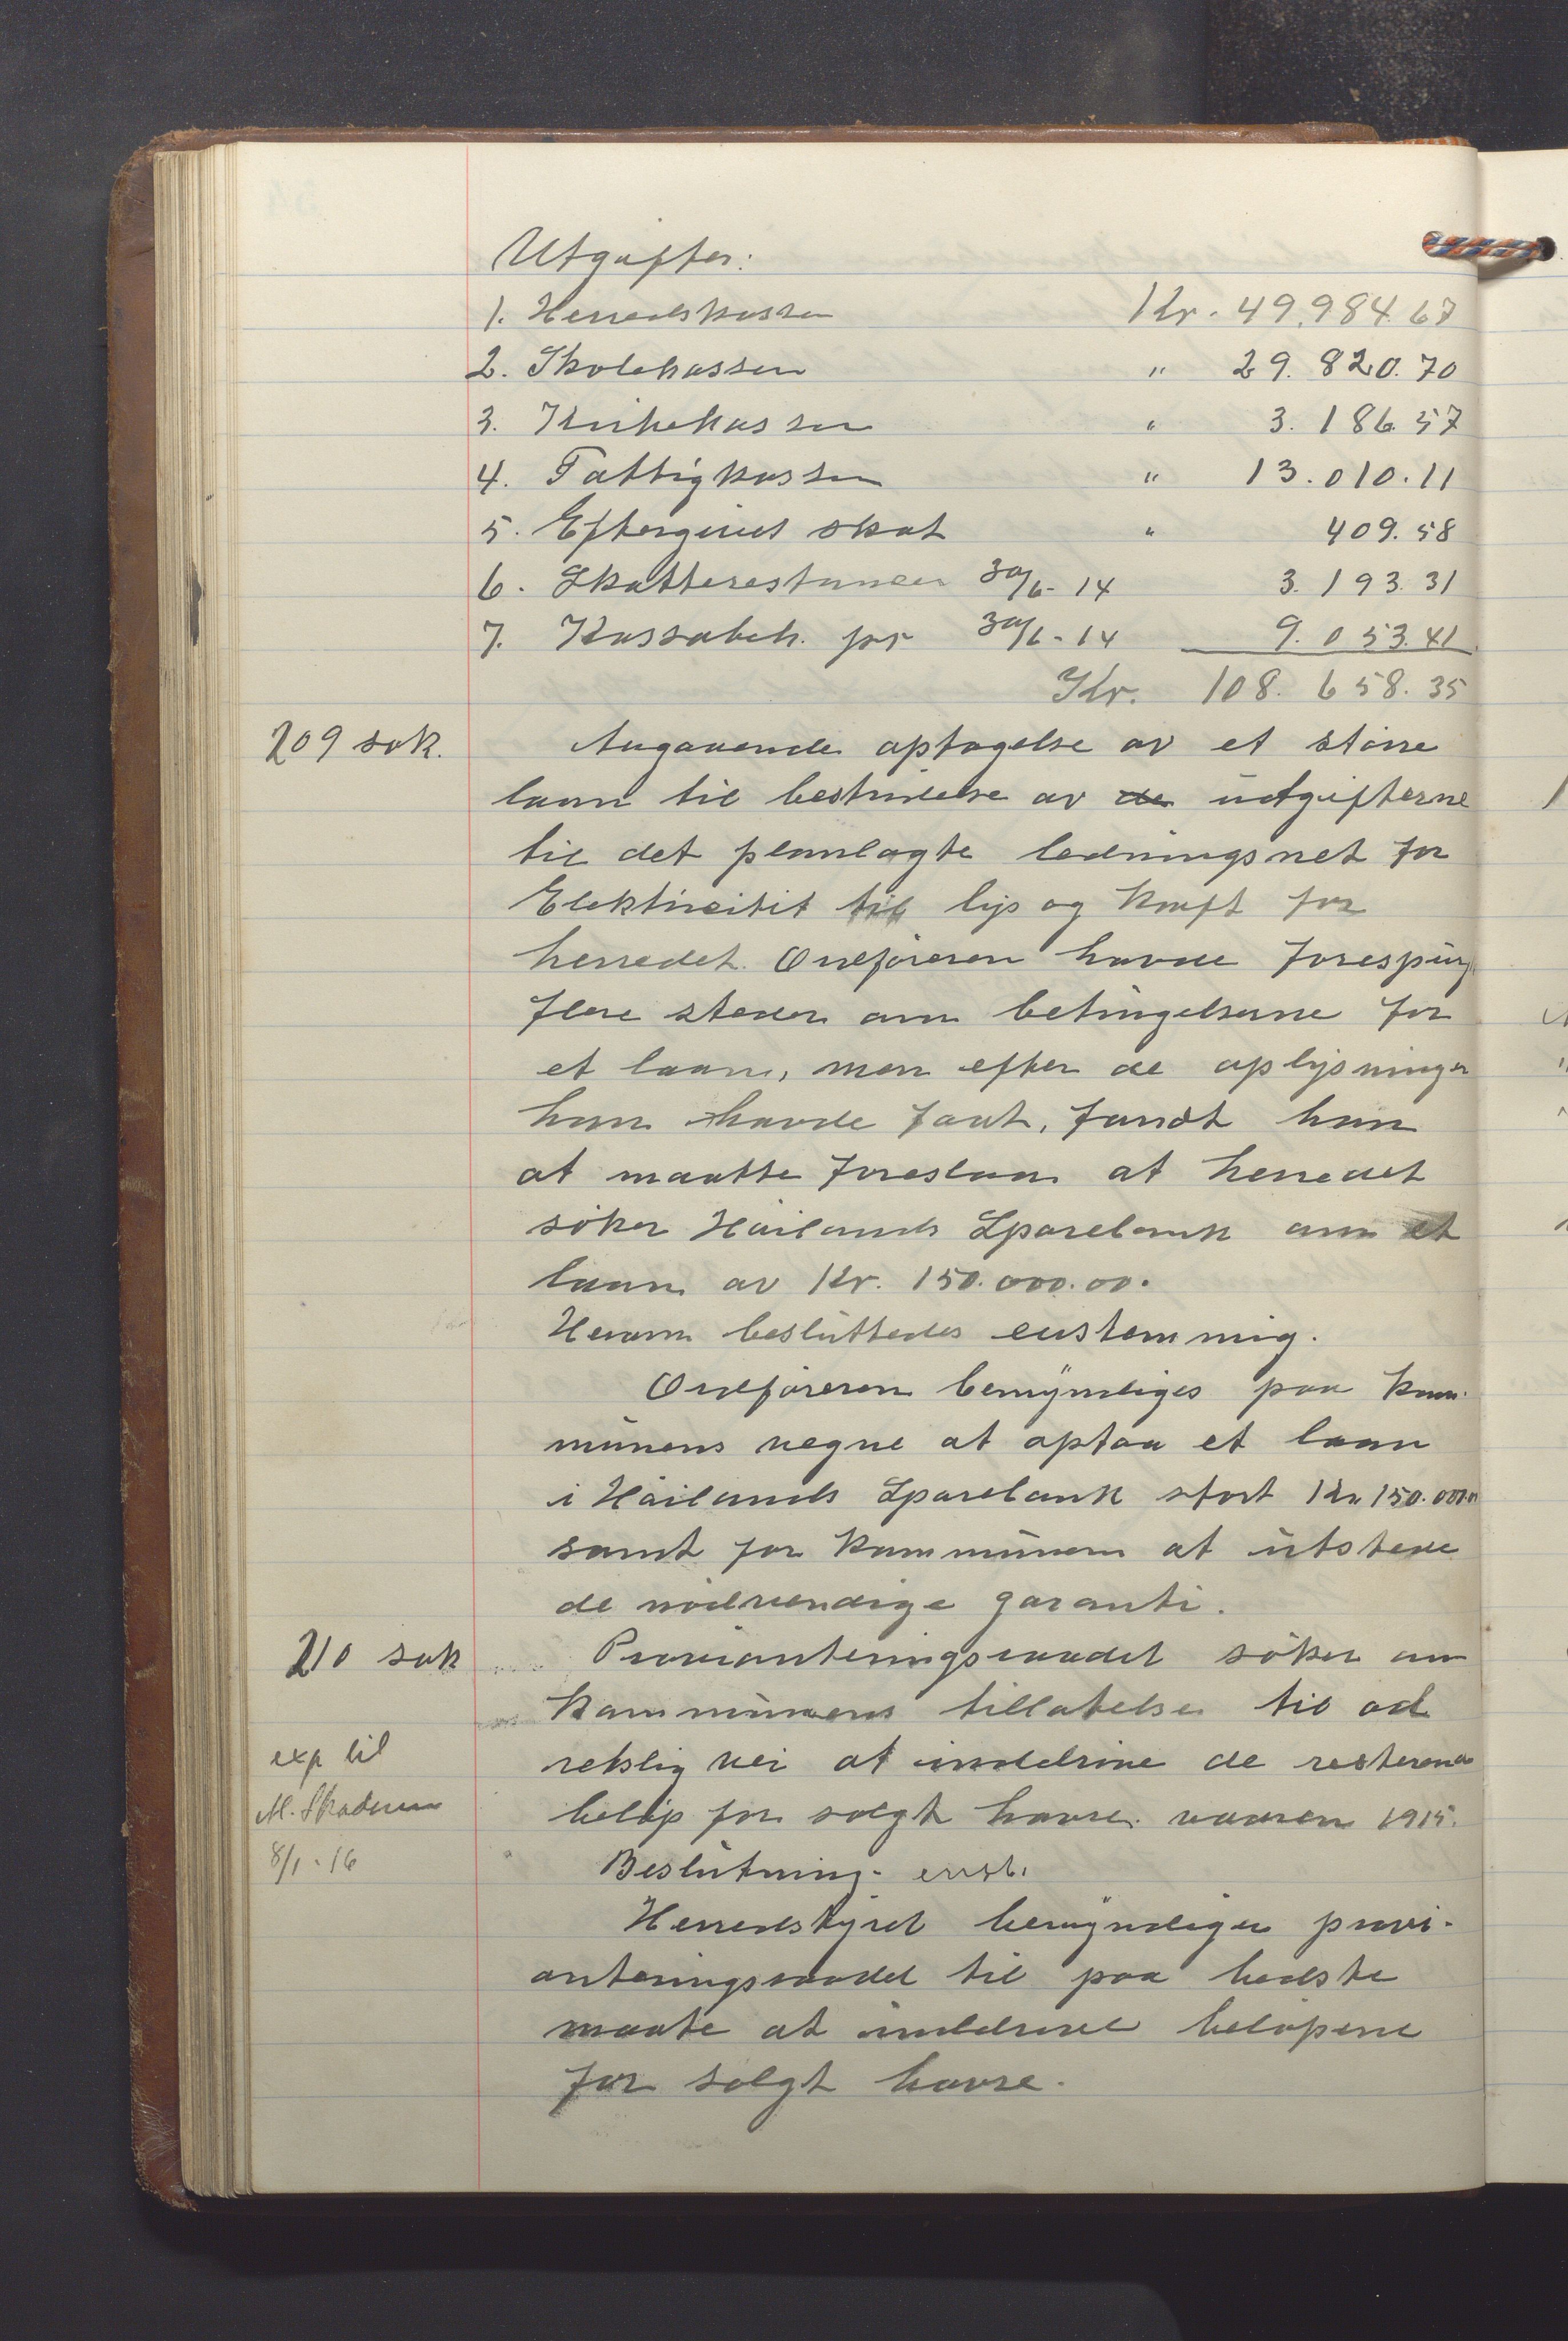 Utgifter:
1. Herredskassen Kr. 49.984.67
2. Skolekassen " 29.820.70
3. Kirkekassen " 3.186.57
4. Fattigkassen " 13.010.11
5. Eftergivet skat " 409.58
6. Skatterestancer 30/6-14 3.193.31
7. Kassabeh. pr 30/6-14 9.053.41
Kr. 108.658.35
209 sak. Angaaende optagelse av et större
laan til bestridelse av de utgifterne
til det planlagte ledningsnet for
Elektricitet til lys og kraft for
herredet. Ordföreren havde forespurgt
flere steder om betingelserne for
et laan, men efter de oplysninger
han havde faat, fandt han
at maatte foreslaa at herredet
söker Höilands Sparebank om et
laan av Kr. 150.000.00.
Herom besluttedes enstemmig.
Ordföreren bemyndiges paa kom-
munens vegne at optaa et laan
i Höilands Sparebank stort Kr. 150.000.00
samt for kommunen at utstede
de nödvendige garanti.
210 sak Provianteringsraadet söker om
kommunens tillatelse til ad
retslig vei at inddrive de resterende
belöp for solgt havre vaaren 1915.
exp til
M. Skadsem
8/1-16
Beslutning. enst.
Herredstyret bemyndiger provi-
anteringsraadet til paa bedste
maate at inddrive belöpene
for solgt havre.